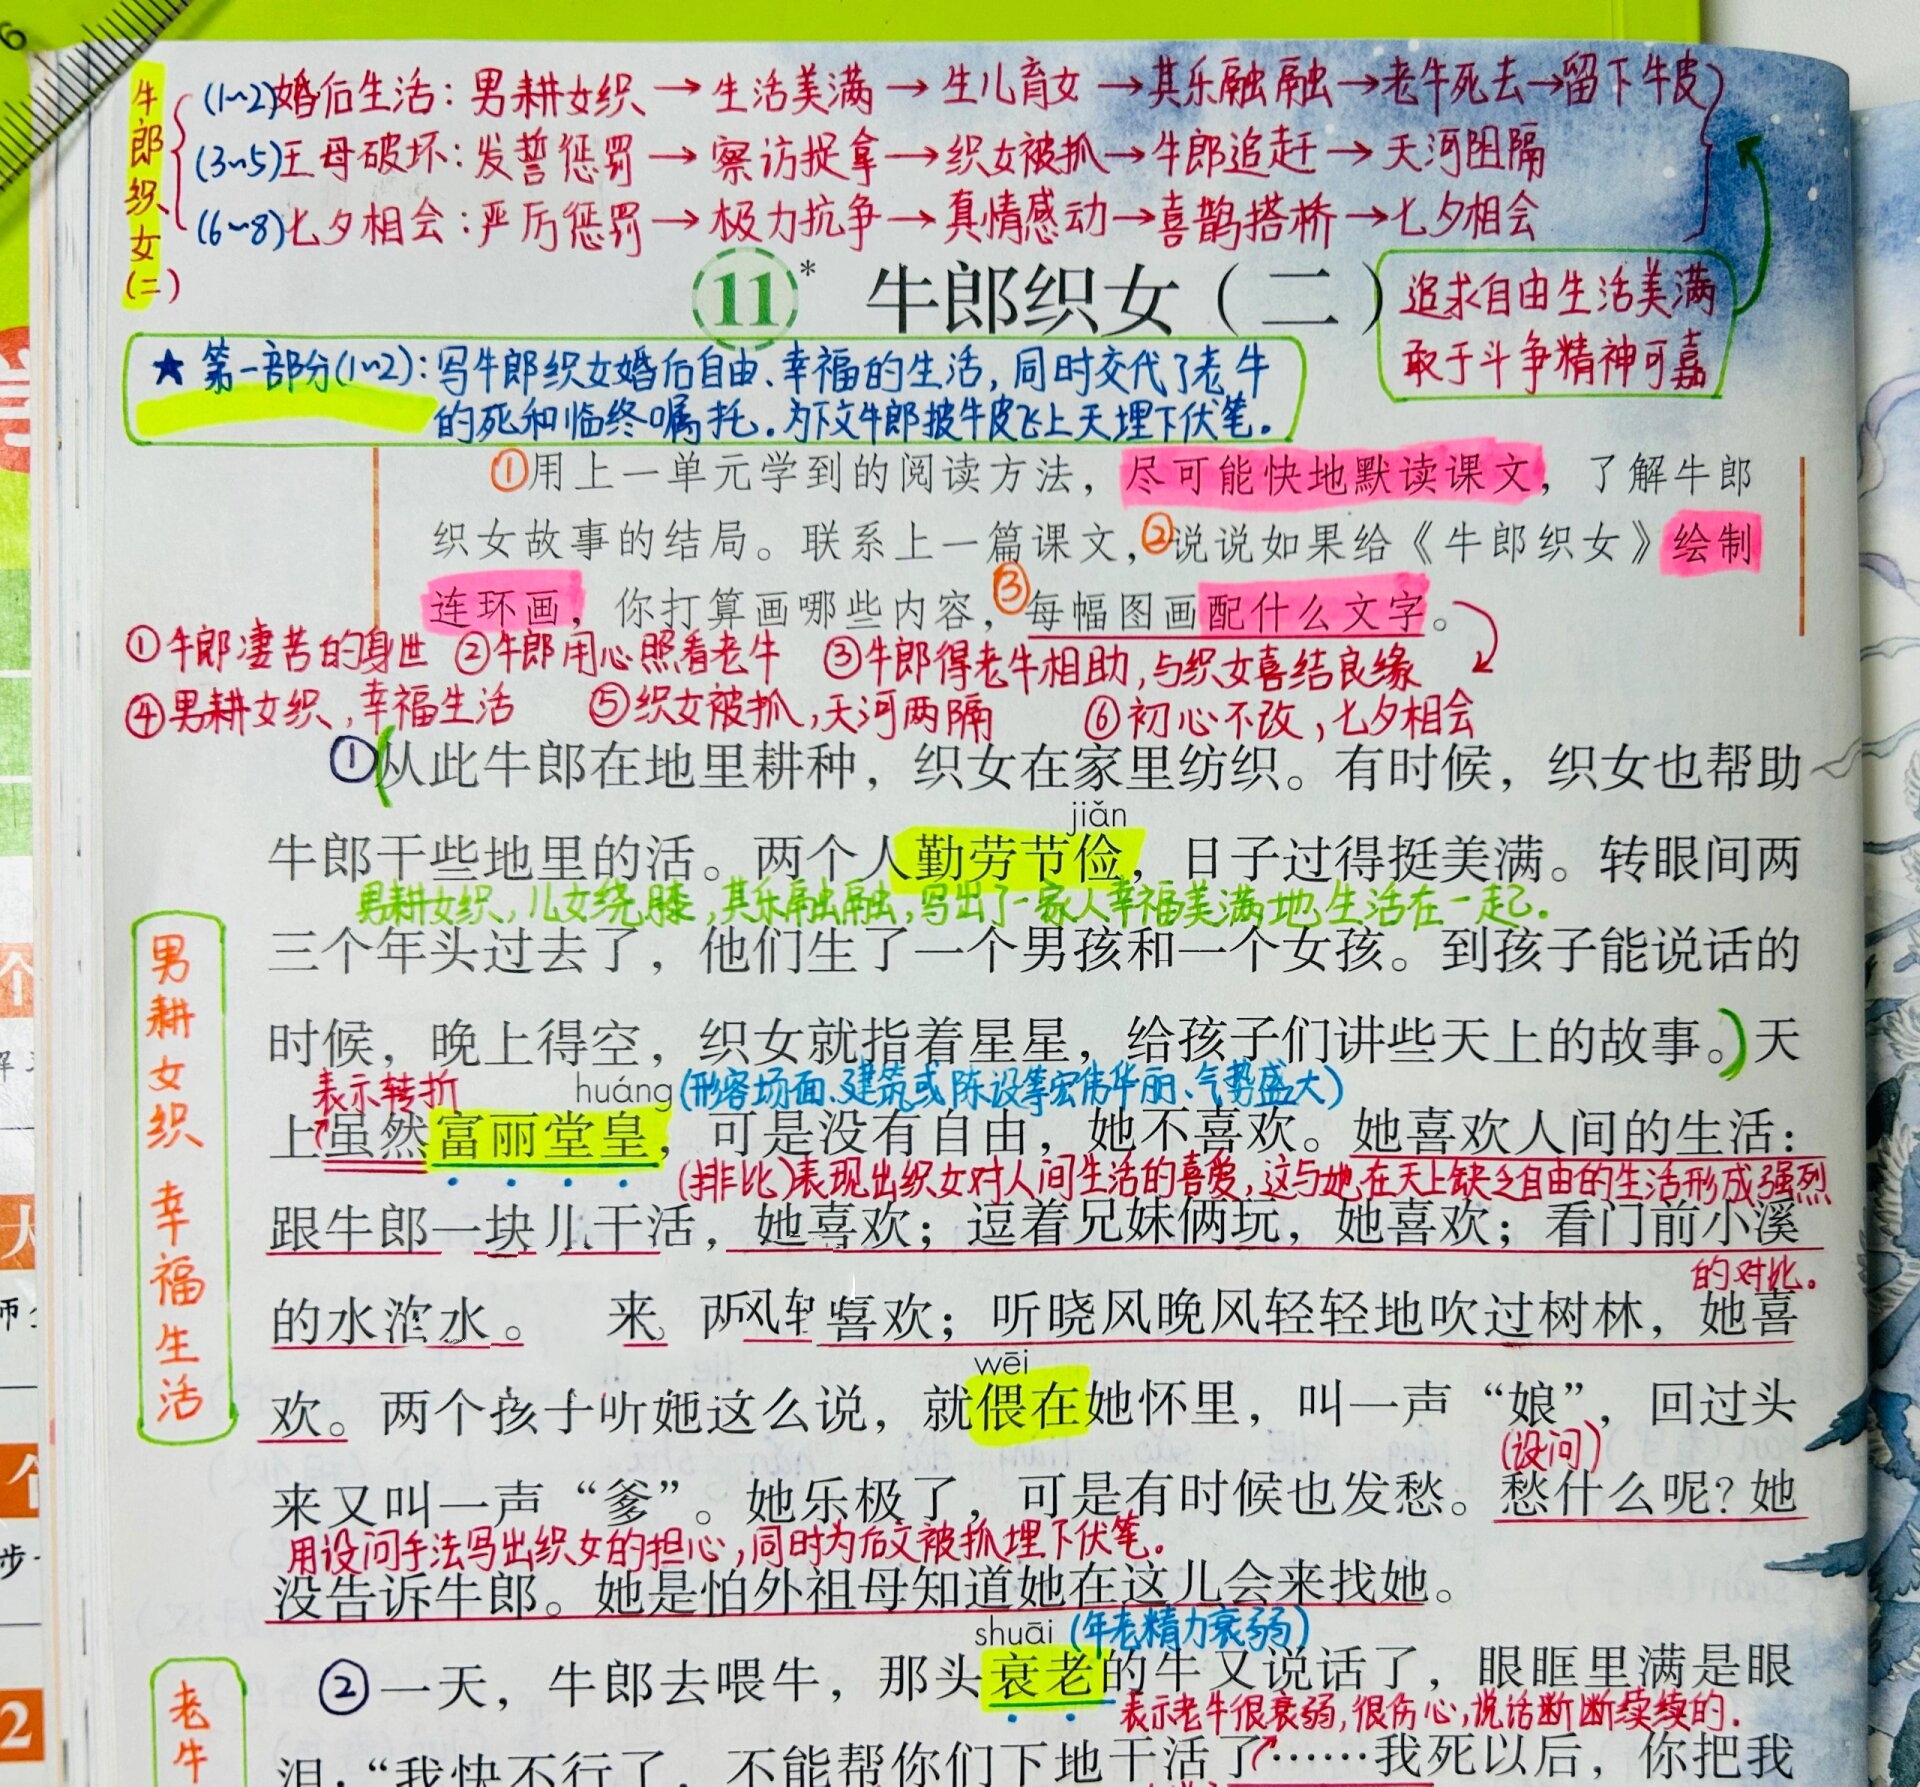 牛郎织女(二)
(1~2)婚后生活：男耕女织→生活美满→生儿育女→其乐融融→老牛死去→留下牛皮
(3~5)王母破坏：发誓惩罚→察访捉拿→织女被抓→牛郎追赶→天河阻隔
(6~8)七夕相会：严厉惩罚→极力抗争→真情感动→喜鹊搭桥→七夕相会
11* 牛郎织女（二）
追求自由生活美满
敢于斗争精神可嘉
★第一部分(1~2)：写牛郎织女婚后自由、幸福的生活，同时交代了老牛
的死和临终嘱托。为下文牛郎披牛皮飞上天埋下伏笔。
①用上一单元学到的阅读方法，尽可能快地默读课文，了解牛郎
织女故事的结局。联系上一篇课文，②说说如果给《牛郎织女》绘制
连环画，你打算画哪些内容，③每幅图画配什么文字。
①牛郎凄苦的身世 ②牛郎用心照看老牛 ③牛郎得老牛相助，与织女喜结良缘
④男耕女织，幸福生活 ⑤织女被抓，天河两隔 ⑥初心不改，七夕相会
①从此牛郎在地里耕种，织女在家里纺织。有时候，织女也帮助
jiǎn
牛郎干些地里的活。两个人勤劳节俭，日子过得挺美满。转眼间两
男耕女织，儿女绕膝，其乐融融，写出了一家人幸福美满地生活在一起。
三个年头过去了，他们生了一个男孩和一个女孩。到孩子能说话的
时候，晚上得空，织女就指着星星，给孩子们讲些天上的故事。天
表示转折
huáng(形容场面、建筑或陈设等宏伟华丽、气势盛大)
上虽然富丽堂皇，可是没有自由，她不喜欢。她喜欢人间的生活：
(排比)表现出织女对人间生活的喜爱，这与她在天上缺乏自由的生活形成强烈
跟牛郎一块儿干活，她喜欢；逗着兄妹俩玩，她喜欢；看门前小溪
的对比。
的水 水。来 喜欢；听晓风晚风轻轻地吹过树林，她喜
wēi
欢。两个孩 听她这么说，就偎在她怀里，叫一声“娘”，回过头
(设问)
来又叫一声“爹”。她乐极了，可是有时候也发愁。愁什么呢？她
用设问手法写出织女的担心，同时为后文被抓埋下伏笔。
没告诉牛郎。她是怕外祖母知道她在这儿会来找她。
shuāi(年老精力衰弱)
②一天，牛郎去喂牛，那头衰老的牛又说话了，眼眶里满是眼
表示老牛很衰弱，很伤心，说话断断续续的。
泪：“我快不行了，不能帮你们下地干活了……我死以后，你把我
男耕女织 幸福生活
老牛